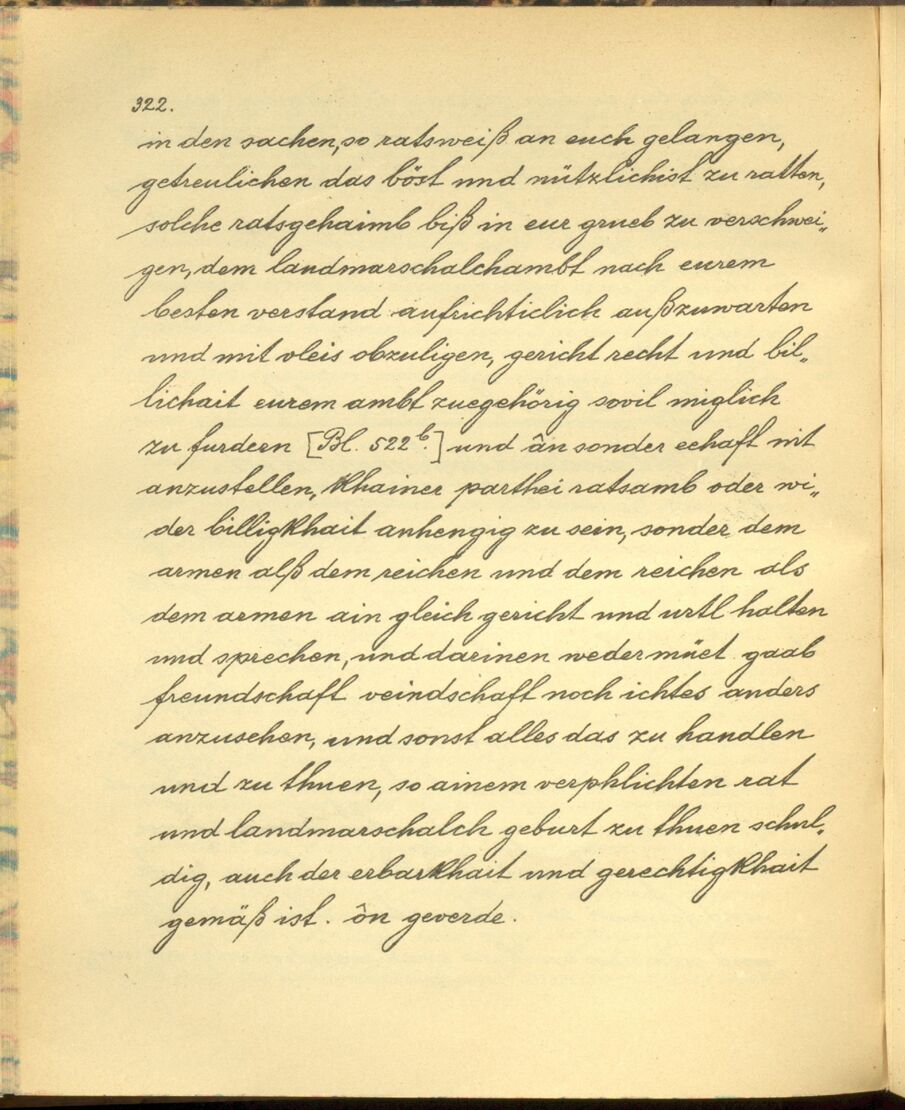 322.
in den sachen, so ratsweiß an euch gelangen,
getreulichen das böst und nützlichist zu ratten,
solche ratsgehaimb biß in eur grueb zu verschwei„
gen, dem landmarschalchambt nach eurem
besten verstand aufrichticlich außzuwarten
und mit vleis obzuligen, gericht recht und bil„
lichait eurem ambt zuegehörig sovil miglich
zu furdern [Bl. 522ᵇ.] und ân sonder eehaft nit
anzustellen, khainer parthei ratsamb oder wi„
der billigkhait anhengig zu sein, sonder dem
armen alß dem reichen und dem reichen als
dem armen ain gleich gericht und urtl halten
und sprechen, und darinen weder müet gaab
freundschaft veindschaft noch ichtes anders
anzusehen, und sonst alles das zu handlen
und zu thuen, so ainem verphlichten rat
und landmarschalch geburt zu thuen schul„
dig, auch der erbarkhait und gerechtigkhait
gemäß ist. ôn geverde.